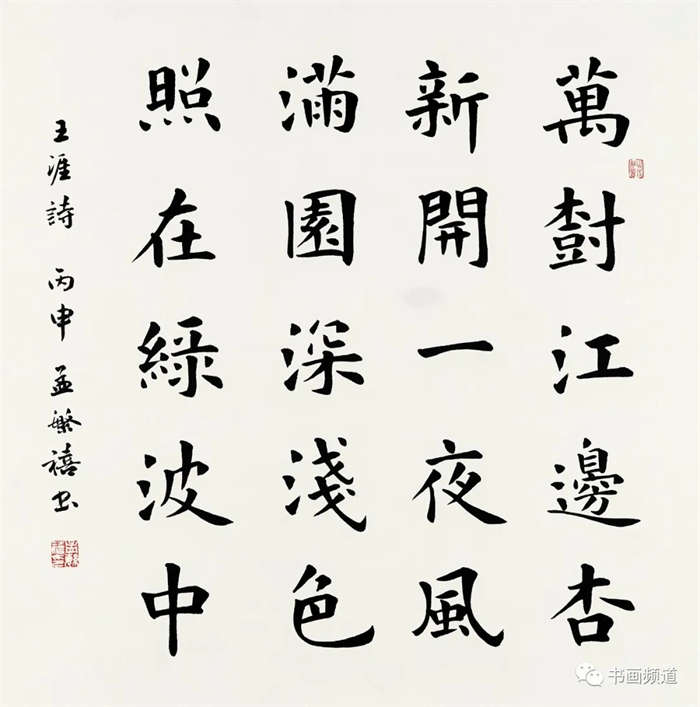 萬樹江邊杏
新開一夜風
滿園深淺色
照在綠波中
王涯詩 丙申 孟繁禧书
书画频道